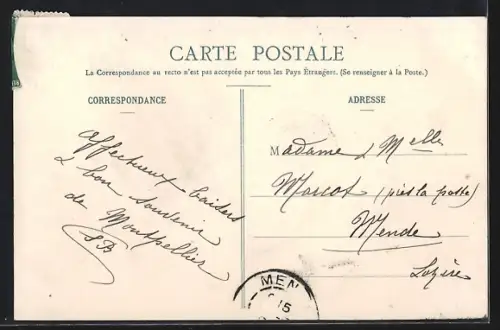 CARTE POSTALE
La Correspondance au recto n'est pas acceptée par tous les Pays Étrangers. (Se renseigner à la Poste.)
CORRESPONDANCE
affectueux baisers
& bon souvenir
de Montpellier
SB
ADRESSE
Madame & Melle
Marcot (près la poste)
Mende
Lozère
MEN